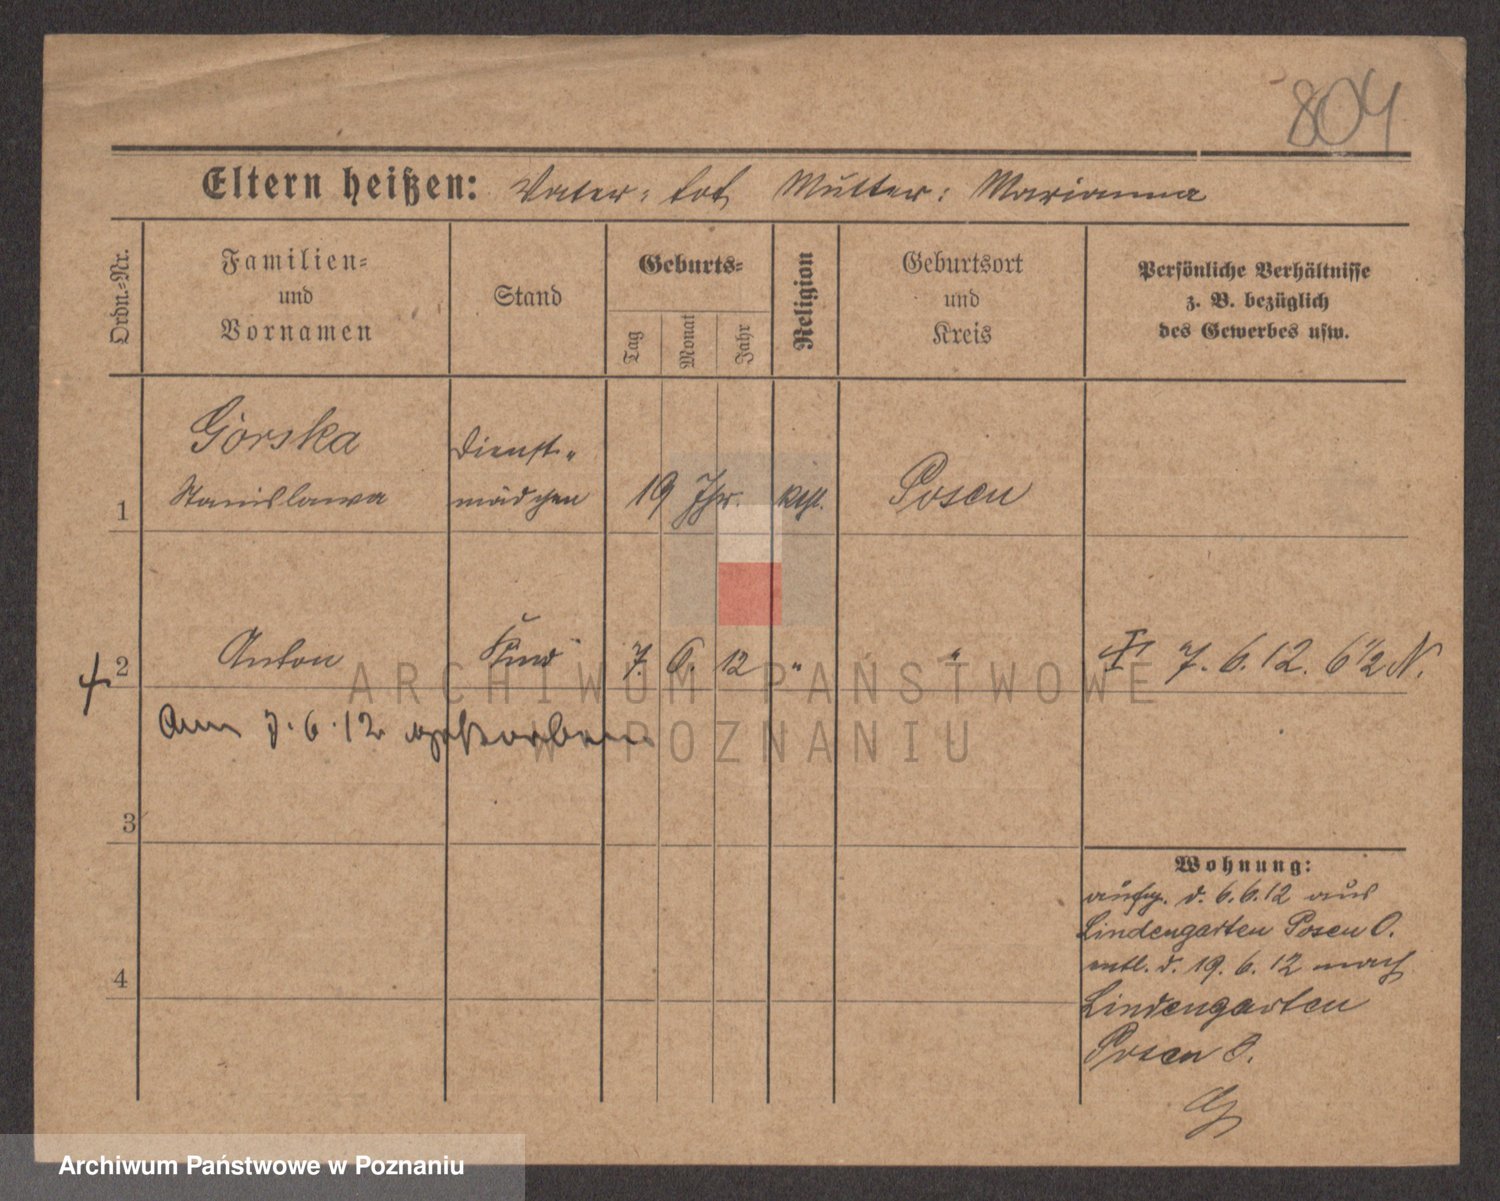 804
Eltern heißen: Vater: tot Mutter: Marianna
Ordn.-Nr.
Familien-
und
Vornamen
Stand
Geburts-
Tag
Monat
Jahr
Religion
Geburtsort
und
Kreis
Persönliche Verhältnisse
z. B. bezüglich
des Gewerbes usw.
Górska
Stanislawa
Dienst-
mädchen
19 Jhr.
kth.
Posen
1
Anton
Kind
7. 6. 12
"
"
7. 6. 12. 6½ N.
2
am 7. 6. 12 gestorben
3
4
Wohnung:
aufg. d. 6.6.12 aus
Lindengarten Posen O.
entl. d. 19. 6. 12 nach
Lindengarten
Posen O.
ARCHIWUM PAŃSTWOWE
W POZNANIU
Archiwum Państwowe w Poznaniu